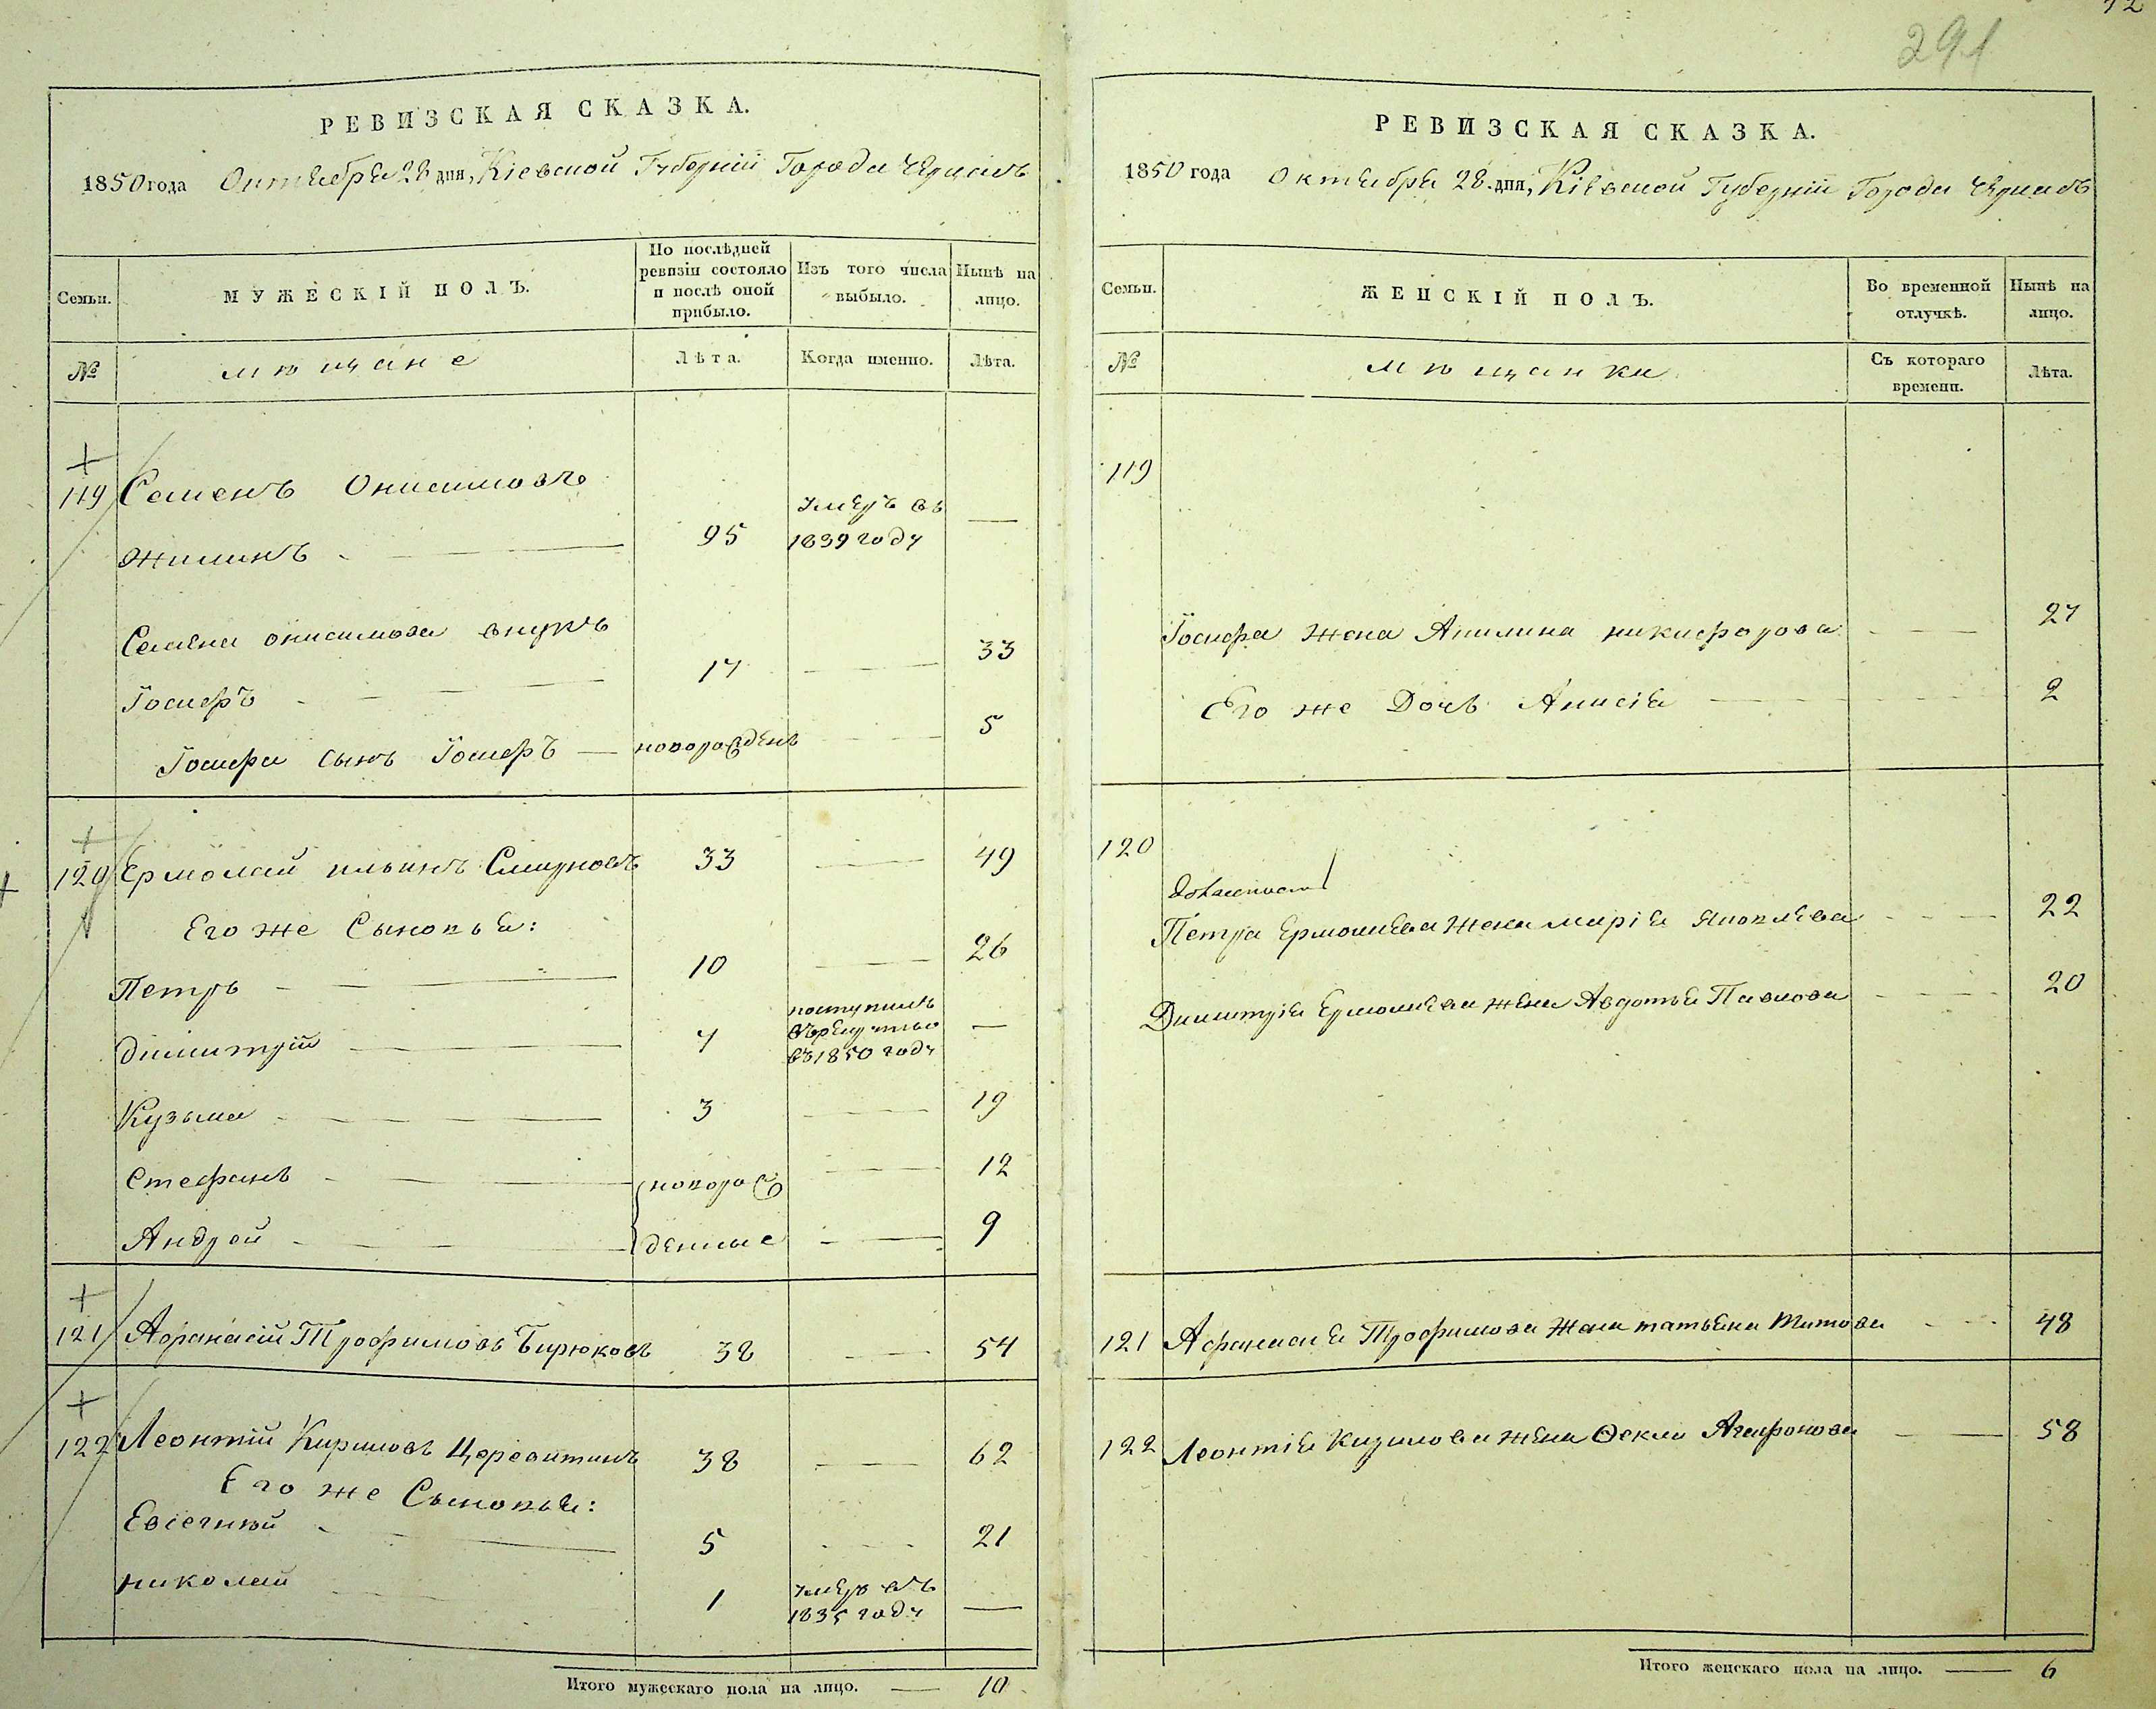 291
РЕВИЗСКАЯ СКАЗКА.
1850 года Октября 28 дня, Кіевской Губерніи Города Черкасъ
Семьи.
МУЖЕСКІЙ ПОЛЪ.
По послѣдней
ревизіи состояло
и послѣ оной
прибыло.
Изъ того числа
выбыло.
Нынѣ на
лицо.
№
мѣщане
Лѣта.
Когда именно.
Лѣта.
119 Семенъ Онисимовъ
Жилинъ 95 умеръ въ
1839 году —
Семена Онисимова внукъ
Іосифъ 17 33
Іосифа сынъ Іосифъ — новорожденъ 5
120 Ермолай Ильинъ Смирновъ 33 49
Его же Сыновья:
Петръ 10 26
Димитрій 7 поступилъ
въ рекруты
въ 1850 году —
Кузьма 3 19
Стефанъ новорож 12
Андрей денные 9
121 Афанасій Трофимовъ Бирюковъ 38 54
122 Леонтій Кириловъ 38 62
Его же Сыновья:
Евгеній 5 21
Николай 1 умеръ въ
1835 году —
Итого мужескаго пола на лицо. — 10
РЕВИЗСКАЯ СКАЗКА.
1850 года Октября 28 дня, Кіевской Губерніи Города Черкасъ
Семьи.
ЖЕНСКІЙ ПОЛЪ.
Во временной
отлучкѣ.
Нынѣ на
лицо.
№
мѣщанки
Съ котораго
времени.
Лѣта.
119
Іосифа жена Акилина Никифорова 27
Его же Дочь Анисія 2
120
Петра Ермолаева жена Марія Яковлева 22
Димитрія Ермолаева жена Авдотья Павлова 20
121 Афанасія Трофимова жена Татьяна Титова 48
122 Леонтія Кирилова жена Ѳекла Агафонова 58
Итого женскаго пола на лицо. — 6